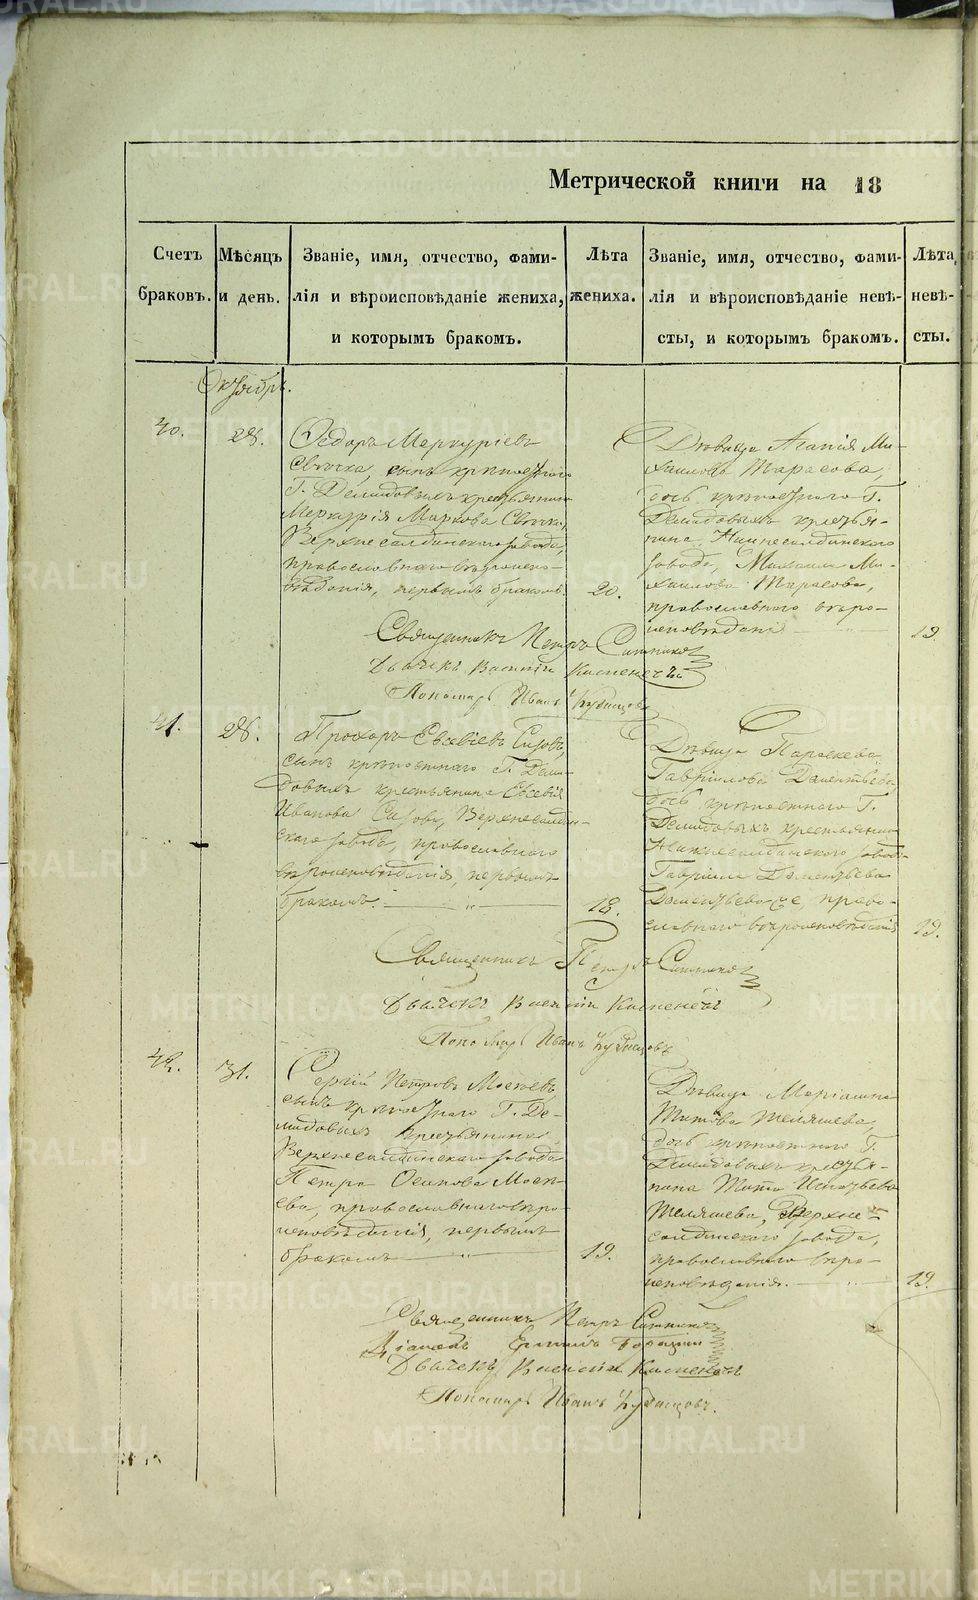 METRIKI.GASO-URAL.RU
Метрической книги на 18
Счетъ браковъ.
Мѣсяцъ и день.
Званіе, имя, отчество, фами-
лія и вѣроисповѣданіе жениха,
и которымъ бракомъ.
Лѣта жениха.
Званіе, имя, отчество, фами-
лія и вѣроисповѣданіе невѣ-
сты, и которымъ бракомъ.
Лѣта невѣ-
сты.
Октябрь.
40.
28.
Ѳедоръ Меркуріевъ
сынъ крѣпостнаго
Г. Демидовыхъ крестьянина
Меркурія Маркова
Верхнесалдинскаго завода,
православнаго вѣроиспо-
вѣданія, первымъ бракомъ.
20.
Дѣвица Агапія Ми-
хаилова Тарасова,
дочь крѣпостнаго Г.
Демидовыхъ крестья-
нина, Нижнесалдинскаго
завода, Михаила Ми-
хаилова Тарасова,
православнаго вѣро-
исповѣданія
19.
Священникъ Петръ Ситниковъ
Дьячекъ Василій
Пономарь Иванъ
41.
28.
Прохоръ Евсевіевъ Сизовъ,
сынъ крѣпостнаго Г. Деми-
довыхъ крестьянина Евсевія
Иванова Сизова, Верхнесалдин-
скаго завода, православнаго
вѣроисповѣданія, первымъ
бракомъ.
18.
Дѣвица Параскева
Гавріилова Дементьева,
дочь крѣпостнаго Г.
Демидовыхъ крестьянина
Нижнесалдинскаго завода
Гавріила Дементьева
право-
славнаго вѣроисповѣданія
19.
Священникъ Петръ Ситниковъ
Дьячекъ Василій
Пономарь Иванъ
42.
31.
Сергій Петровъ Мосеевъ,
сынъ крѣпостнаго Г. Де-
мидовыхъ крестьянина
Верхнесалдинскаго завода
Петра Осипова Мосе-
ева, православнаго вѣро-
исповѣданія, первымъ
бракомъ
19.
Дѣвица Маріамна
Титова Теляшева,
дочь крѣпостнаго Г.
Демидовыхъ крестья-
нина Тита Игнатьева
Теляшева, Верхне-
салдинскаго завода,
православнаго вѣро-
исповѣданія.
19.
Священникъ Петръ Ситниковъ
Діаконъ
Дьячекъ Василій
Пономарь Иванъ